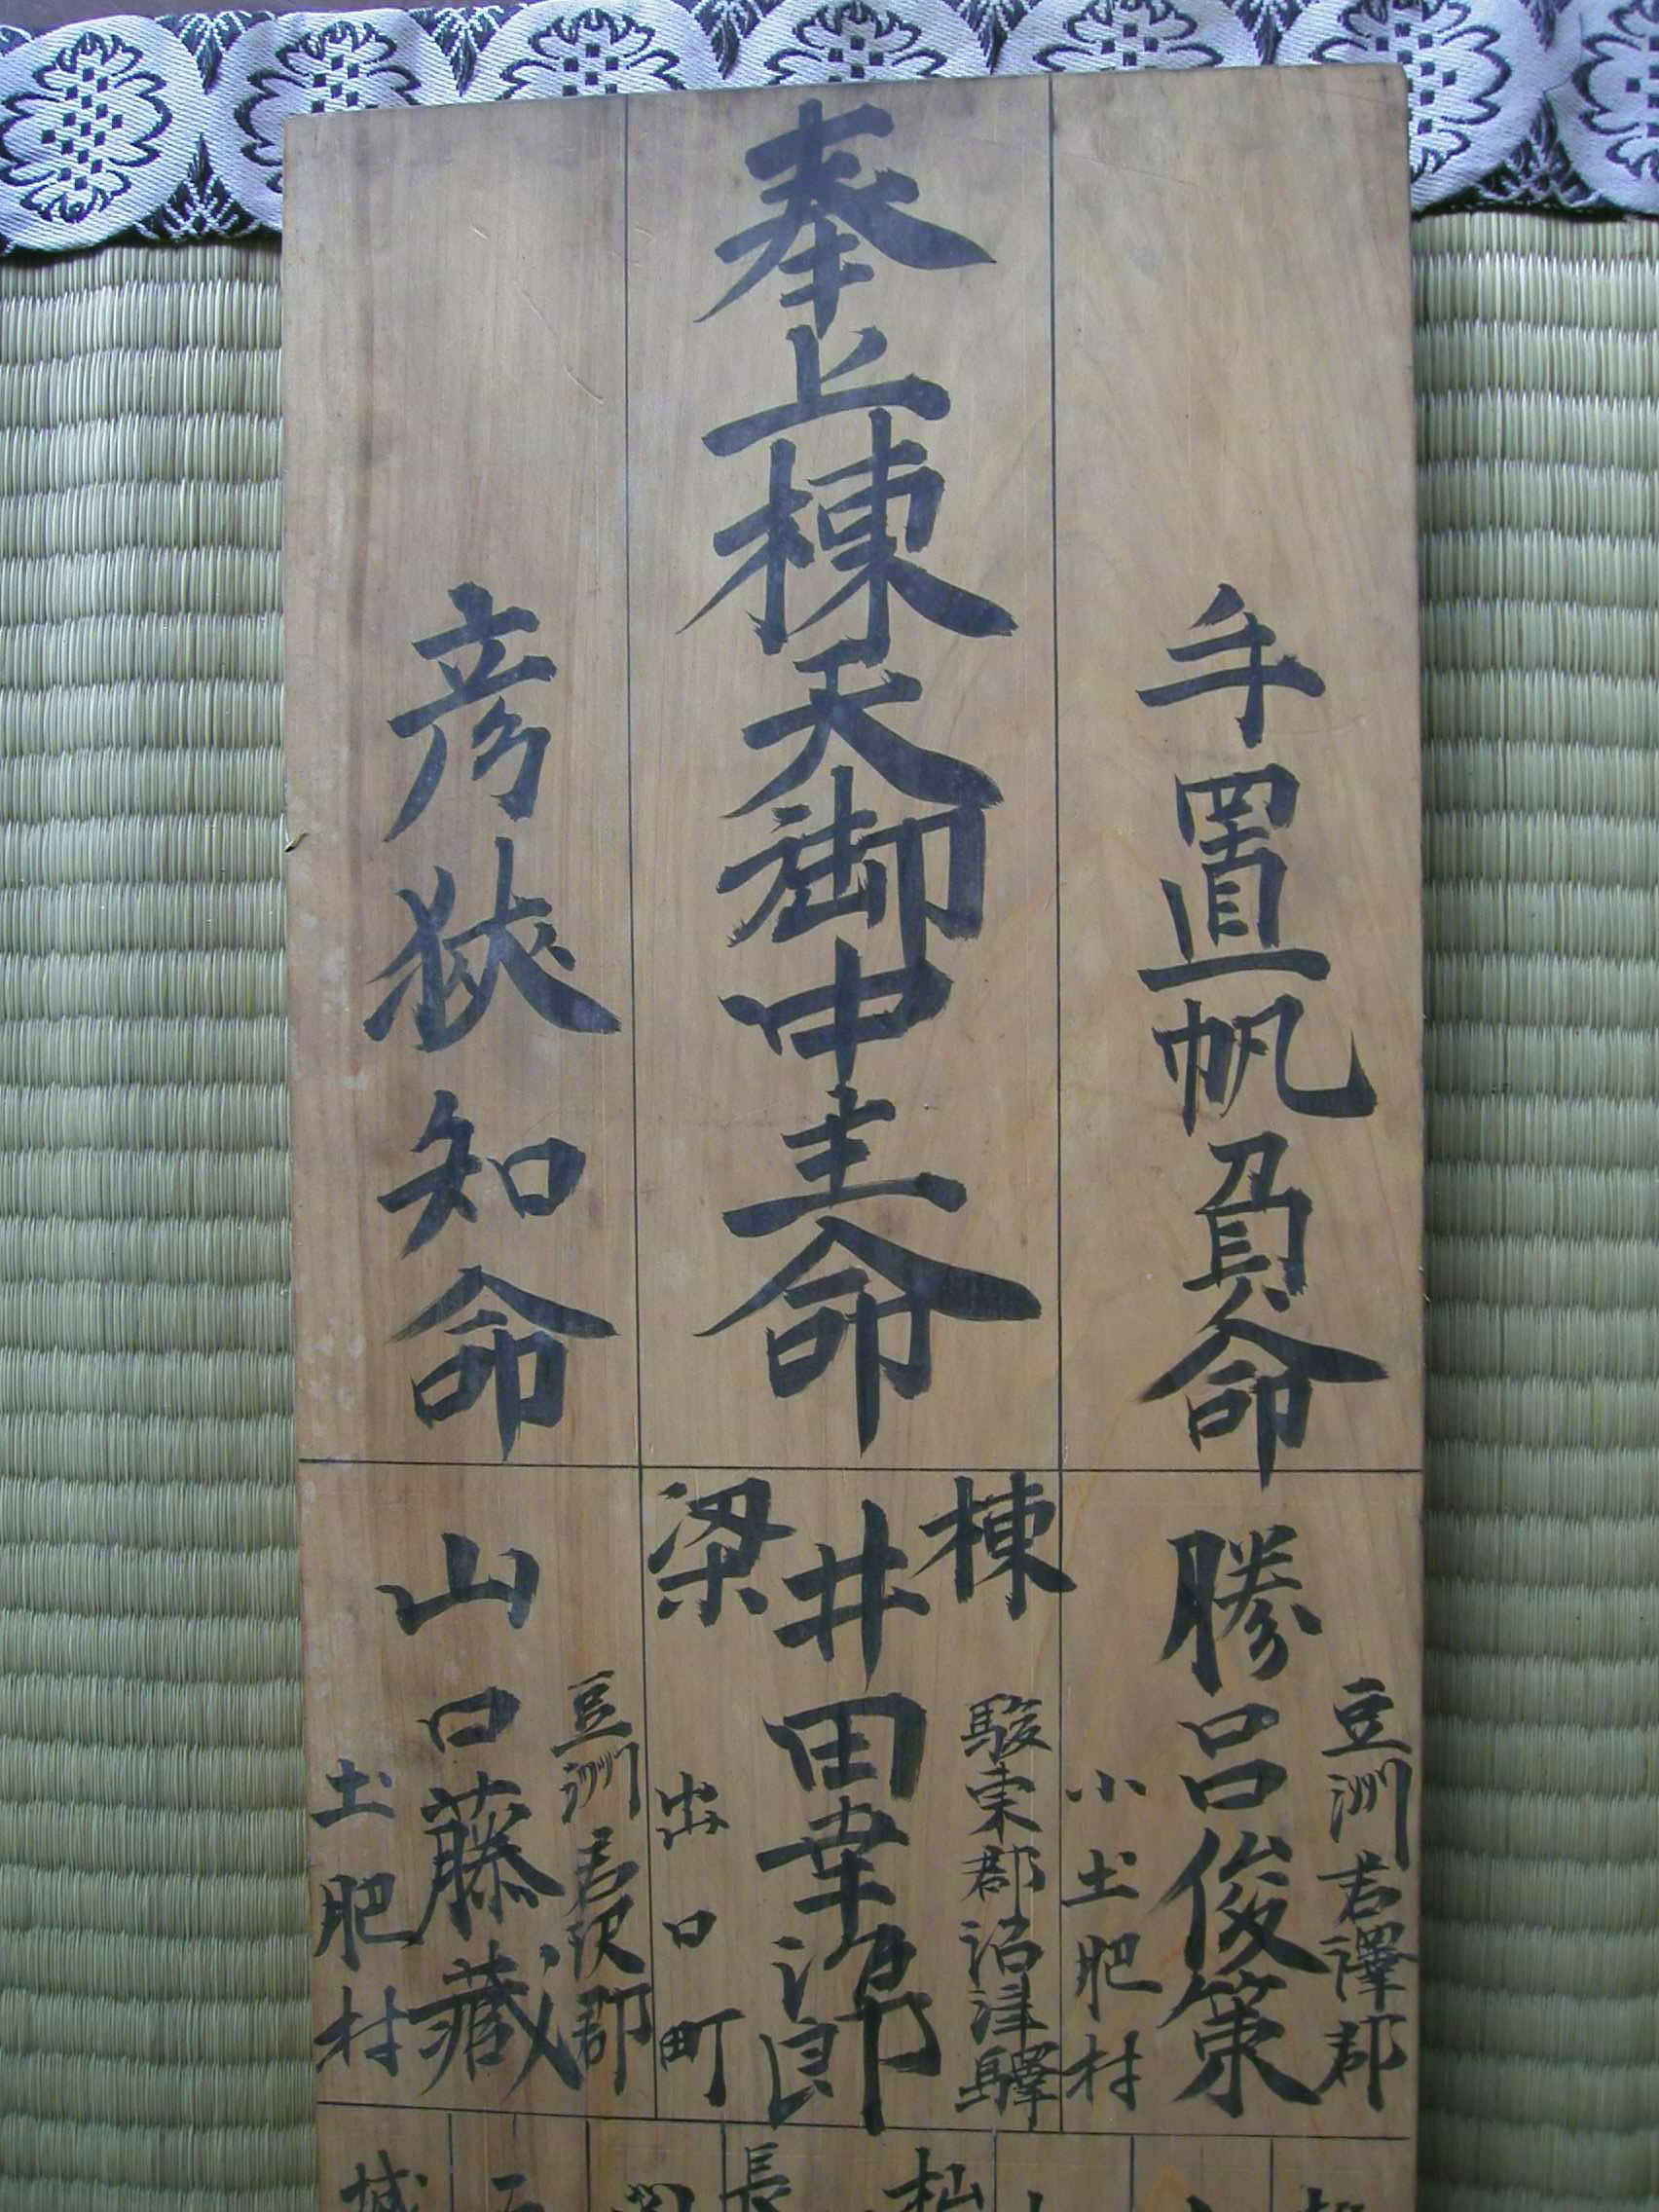 手置帆負命
奉上棟天御中主命
彦狭知命
豆洲君澤郡
勝呂俊策
小土肥村
棟梁
駿東郡沼津驛
井田幸治郎
出口町
豆洲君沢郡
山口藤藏
土肥村
長
城